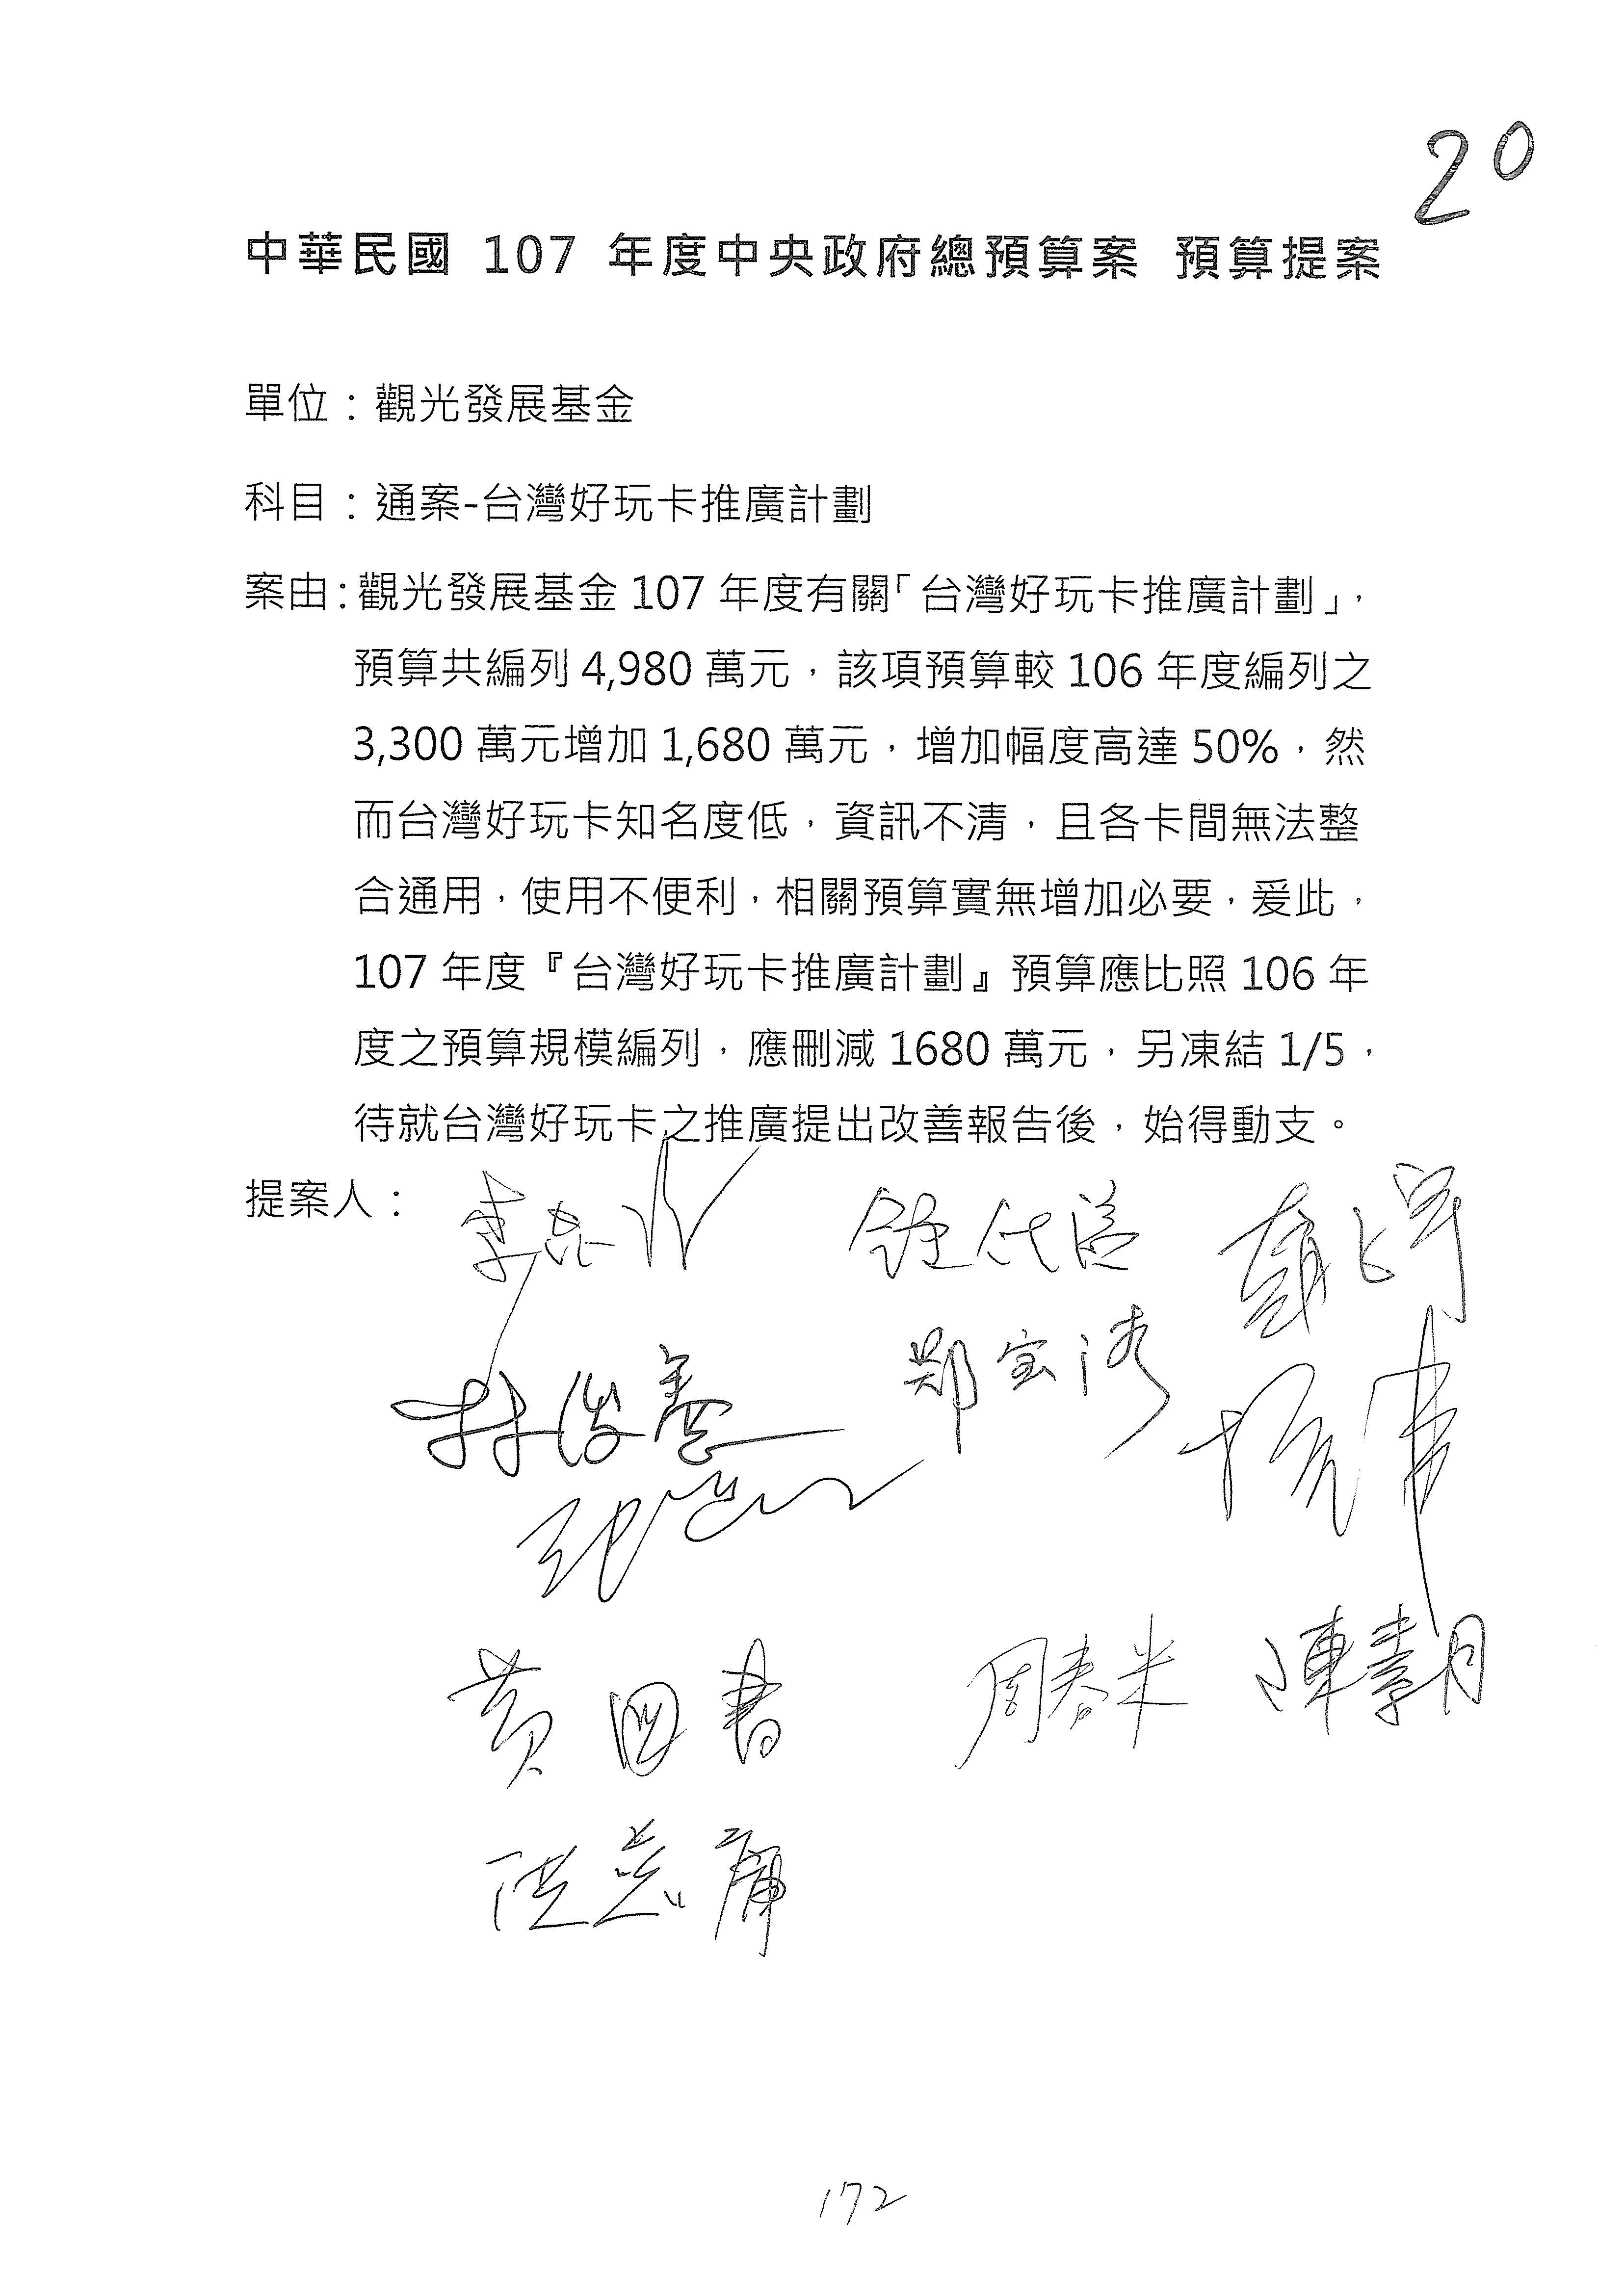 20
中華民國 107 年度中央政府總預算案 預算提案
單位：觀光發展基金
科目：通案-台灣好玩卡推廣計劃
案由：觀光發展基金 107 年度有關「台灣好玩卡推廣計劃」，
預算共編列 4,980 萬元，該項預算較 106 年度編列之
3,300 萬元增加 1,680 萬元，增加幅度高達 50%，然
而台灣好玩卡知名度低，資訊不清，且各卡間無法整
合通用，使用不便利，相關預算實無增加必要，爰此，
107 年度『台灣好玩卡推廣計劃』預算應比照 106 年
度之預算規模編列，應刪減 1680 萬元，另凍結 1/5，
待就台灣好玩卡之推廣提出改善報告後，始得動支。
提案人：
鄭宝清
林俊憲
黃國書 周春米 陳素月
洪慈庸
172